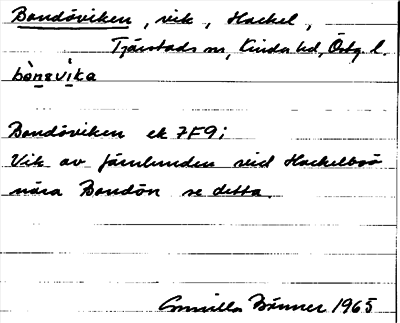 Bondöviken, vik, Hackel,
Tjärstads sn, Kinda hd, Östg. l.
bònsvìka
Bondöviken ek 7F9i
Vik av Järnlunden vid Hackelboö
nära Bondön se detta.
Gunilla Bänner 1965